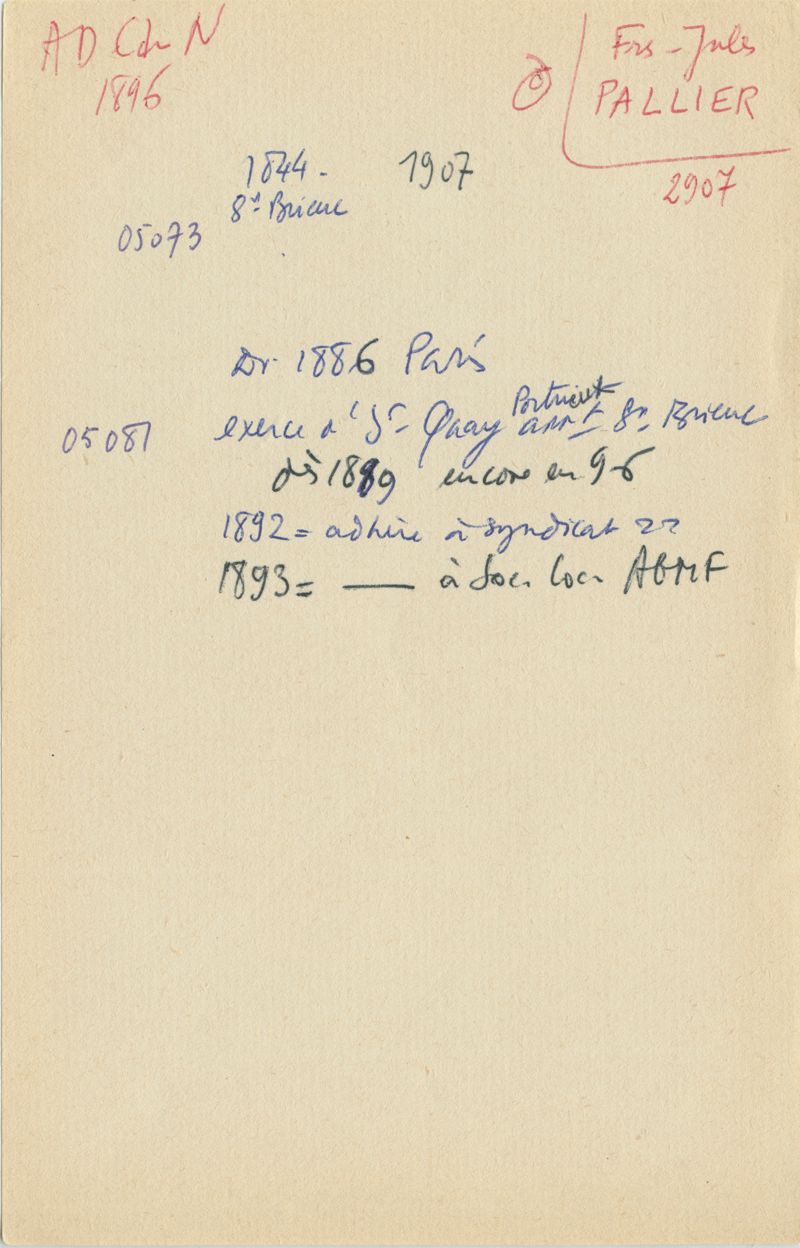 AD CduN
1896
Frs-Jules
PALLIER
2907
1844- 1907
St Brieuc
05073
Dr 1886 Paris
Portrieux
05081 exerce à St Quay arrt St Brieuc
dès 1889 encore en 96
1892 = adhère à syndicat 22
1893 = — à Soc. loc. AGMF